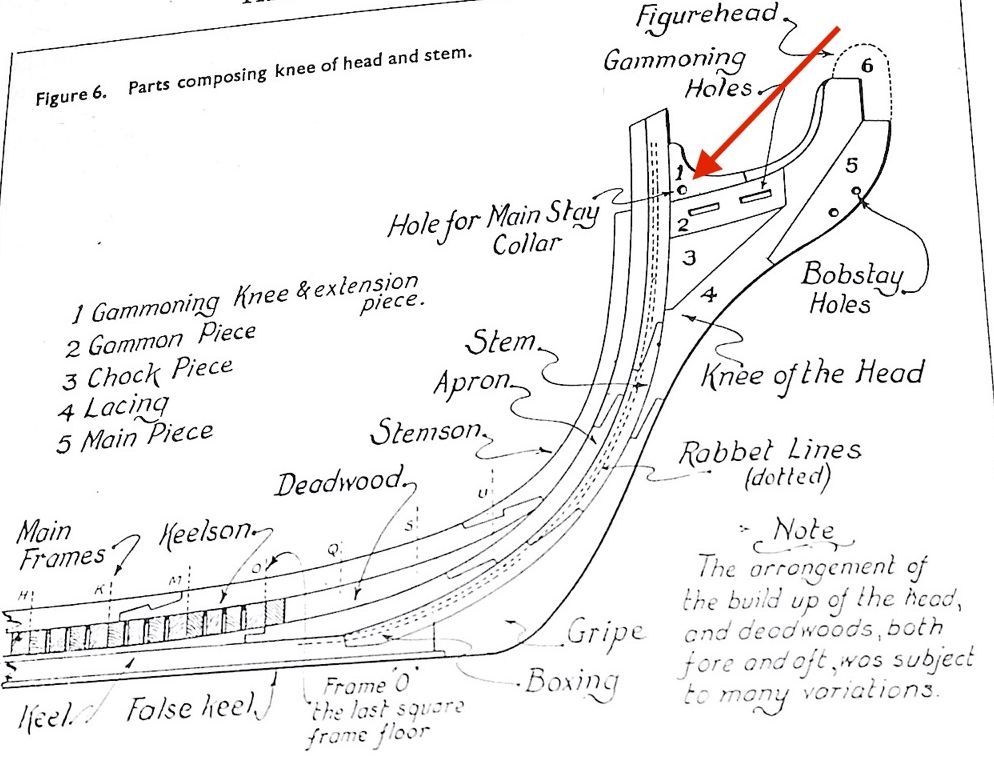 Figure 6. Parts composing knee of head and stem.
Figurehead
Gammoning
Holes
6
5
1
2
3
4
Hole for Main Stay
Collar
Bobstay
Holes
1 Gammoning Knee & extension
piece.
2 Gammon Piece
3 Chock Piece
4 Lacing
5 Main Piece
Stem
Apron
Stemson
Knee of the Head
Deadwood
Rabbet Lines
(dotted)
Main
Frames
Keelson
H
K
M
O
Q
S
U
Note
The arrangement of
the build up of the head,
and deadwoods, both
fore and aft, was subject
to many variations.
Gripe
Boxing
Keel
False keel
Frame 'O'
the last square
frame floor